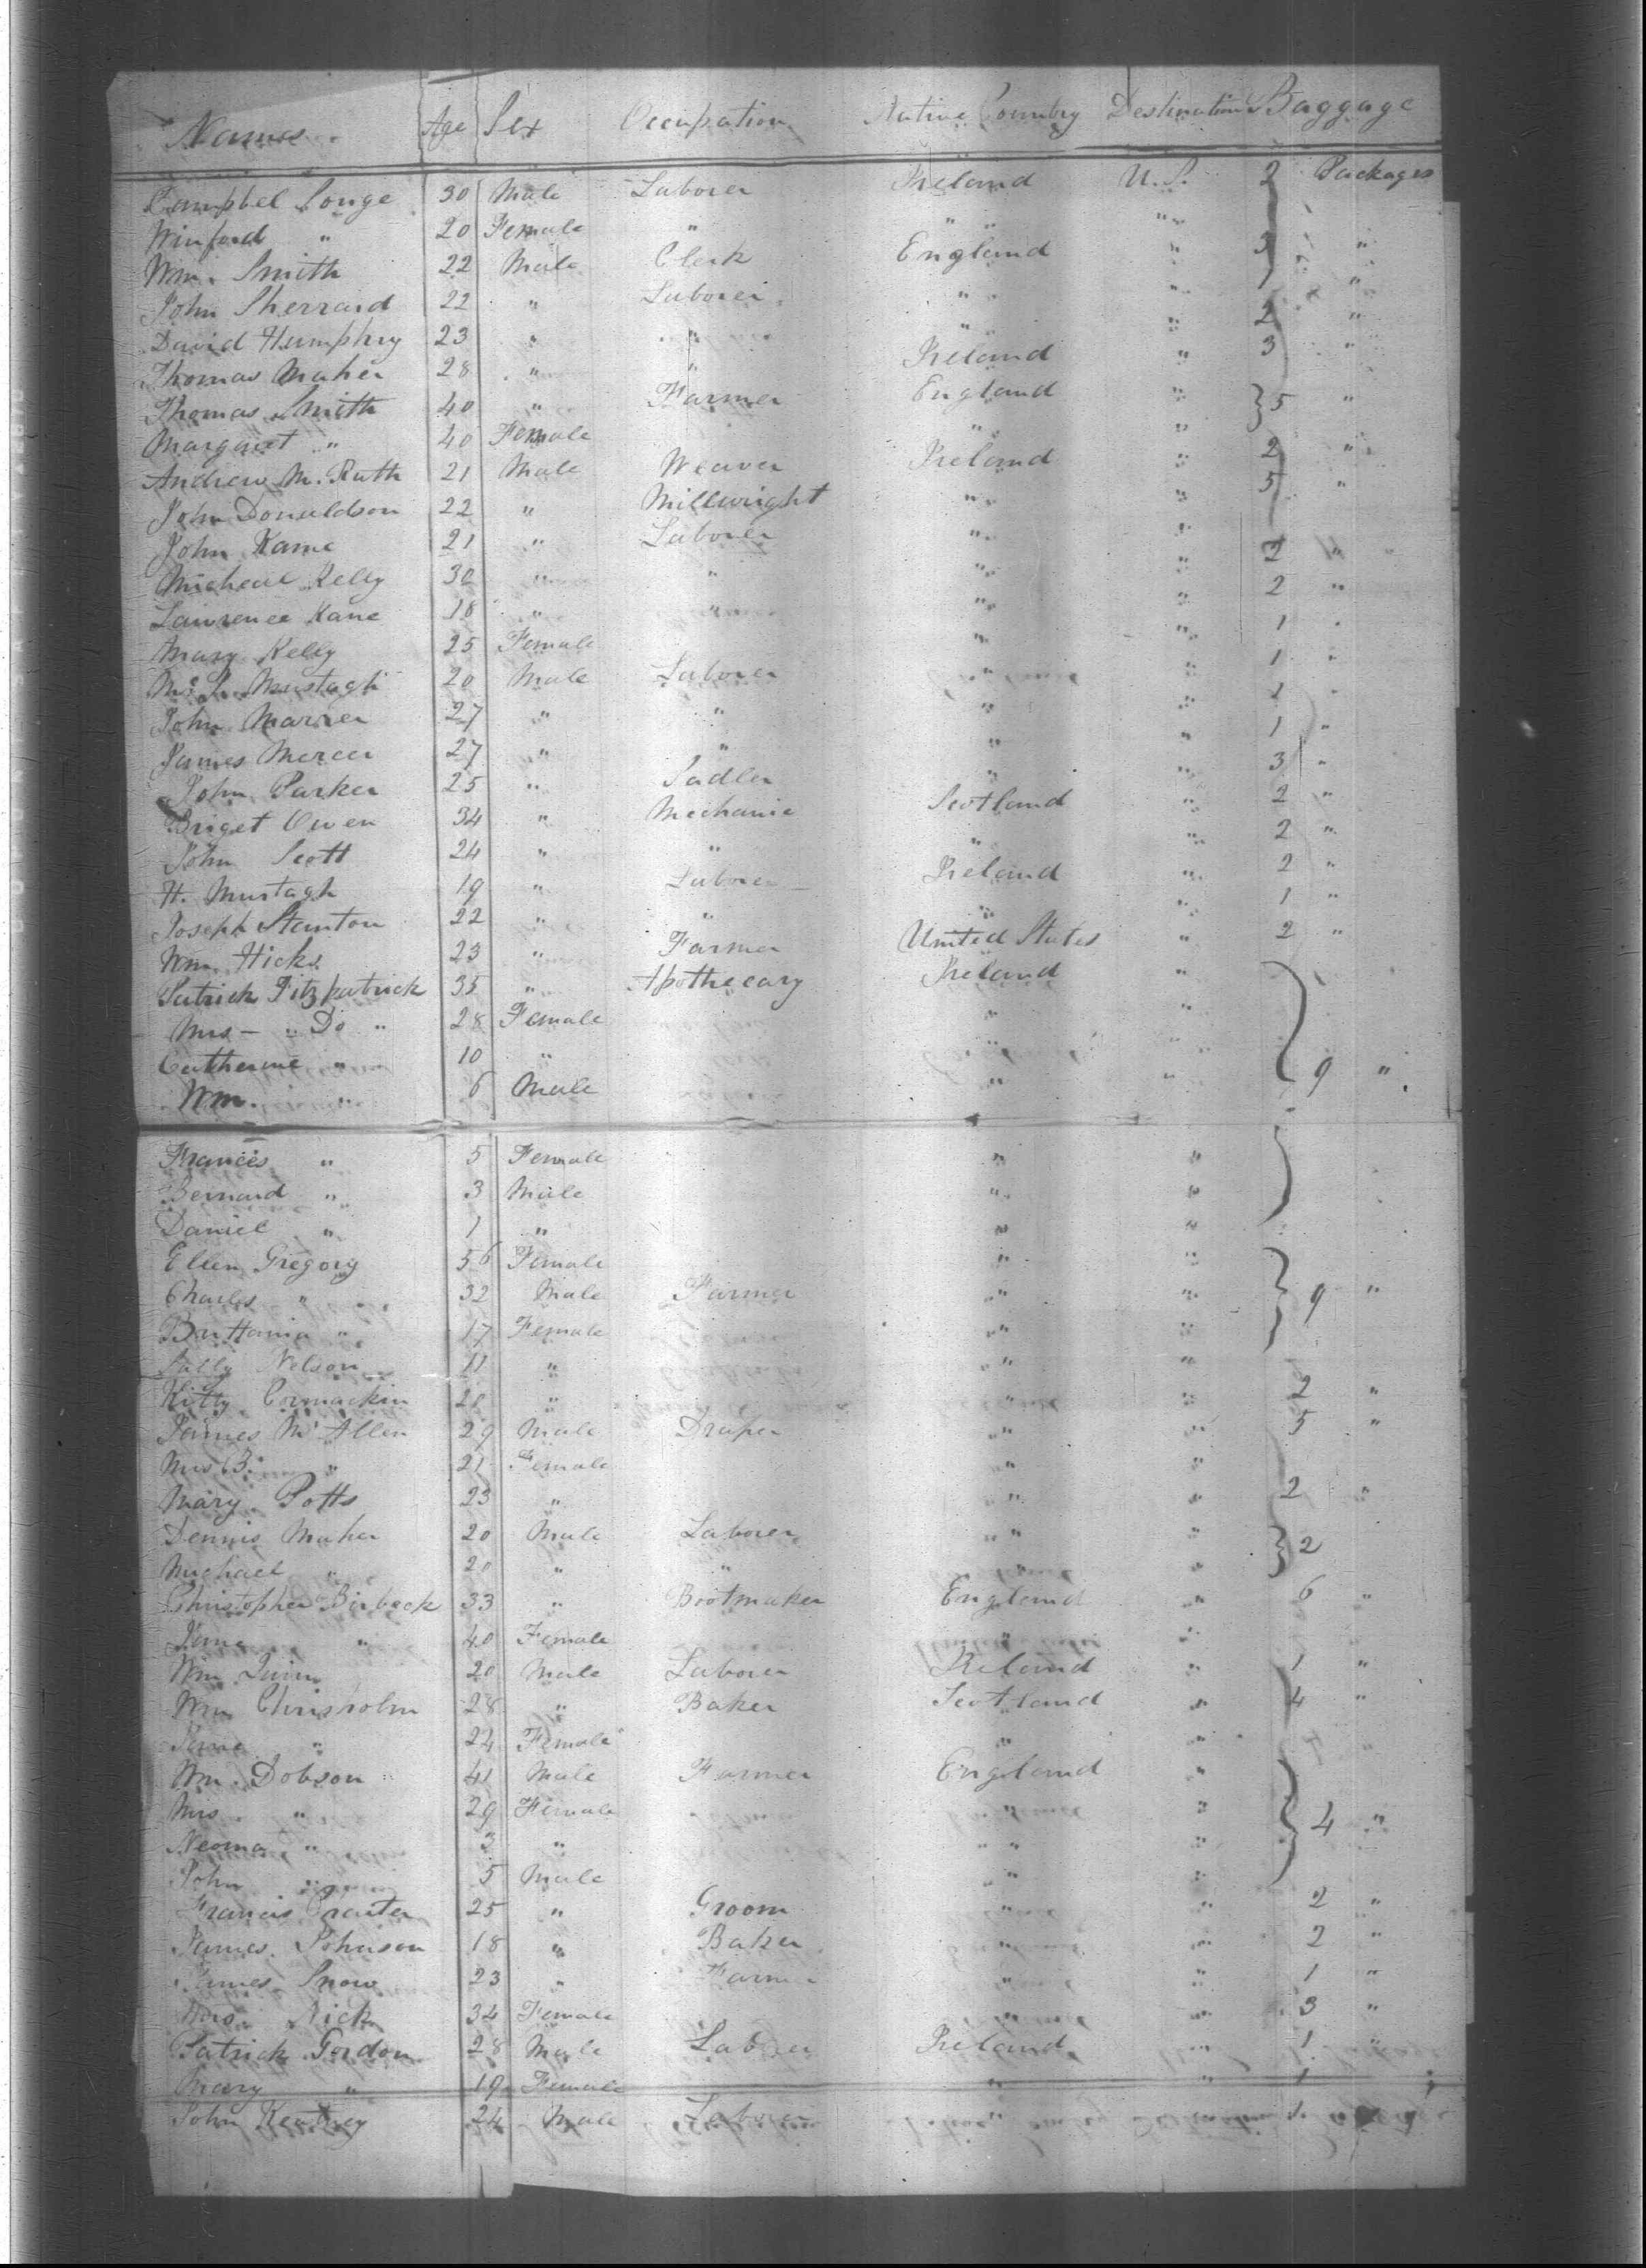 Names Age Sex Occupation Native Country Destination Baggage
Campbel Longe 30 Male Laborer Ireland U.S. 2 Packages
Winford " 20 Female " " " "
Wm. Smith 22 Male Clerk England " 3 "
John Sherrard 22 " Laborer " " "
David Humphry 23 " " " " 2 "
Thomas Maher 28 " " Ireland " 3 "
Thomas Smith 40 " Farmer England " 5 "
Margaret " 40 Female " "
Andrew M. Ruth 21 Male Weaver Ireland " 2 "
John Donaldson 22 " Millwright " " 5 "
John Kane 21 " Laborer " "
Micheal Kelly 30 " " " " 2 "
Lawrence Kane 18 " " " " 2 "
Mary Kelly 25 Female " " 1 "
Murtagh 20 Male Laborer " " 1 "
John Marrer 27 " " " " 1 "
James Mercer 27 " " " " 1 "
John Parker 25 " Sadler " " 3 "
Briget Owen 34 " Mechanic Scotland " 2 "
John Scott 24 " " " " 2 "
H. Murtagh 19 " Laborer Ireland " 2 "
Joseph Stanton 22 " " " " 1 "
Wm. Hicks 23 " Farmer United States " 2 "
Patrick Fitzpatrick 35 " Apothecary Ireland "
Mrs - " Do " 28 Female " "
Catherine " 10 " " "
Wm. " 6 Male " " 9 "
Frances " 5 Female " "
Bernard " 3 Male " "
Daniel " 1 " " "
Ellen Gregory 56 Female " "
Charles " 32 Male Farmer " " 9 "
Brittania " 17 Female " "
Sally Nelson 11 " " "
Kitty Cormackin " " " 2 "
James McAllen 29 Male Draper " " 5 "
Mrs B. " 21 Female " "
Mary Potts 23 " " " 2 "
Dennis Maher 20 Male Laborer " " 2
Michael " 20 " " " "
Christopher Birbeck 33 " Bootmaker England " 6 "
Jane " 40 Female " "
Wm Quinn 20 Male Laborer Ireland " 1 "
Wm Chrisholm 28 " Baker Scotland " 4 "
Jane " 24 Female " "
Wm. Dobson 41 Male Farmer England "
Mrs " 29 Female " " 4 "
Neoma " 3 " " "
John " 5 Male " "
Francis 25 " Groom " " 2 "
James Johnson 18 " Baker " " 2 "
James Snow 23 " Farmer " " 1 "
Nick 34 Female " " 3 "
Patrick Gordon 28 Male Laborer Ireland " 1 "
Mary " 19 Female " " 1 "
John 24 Male Laborer